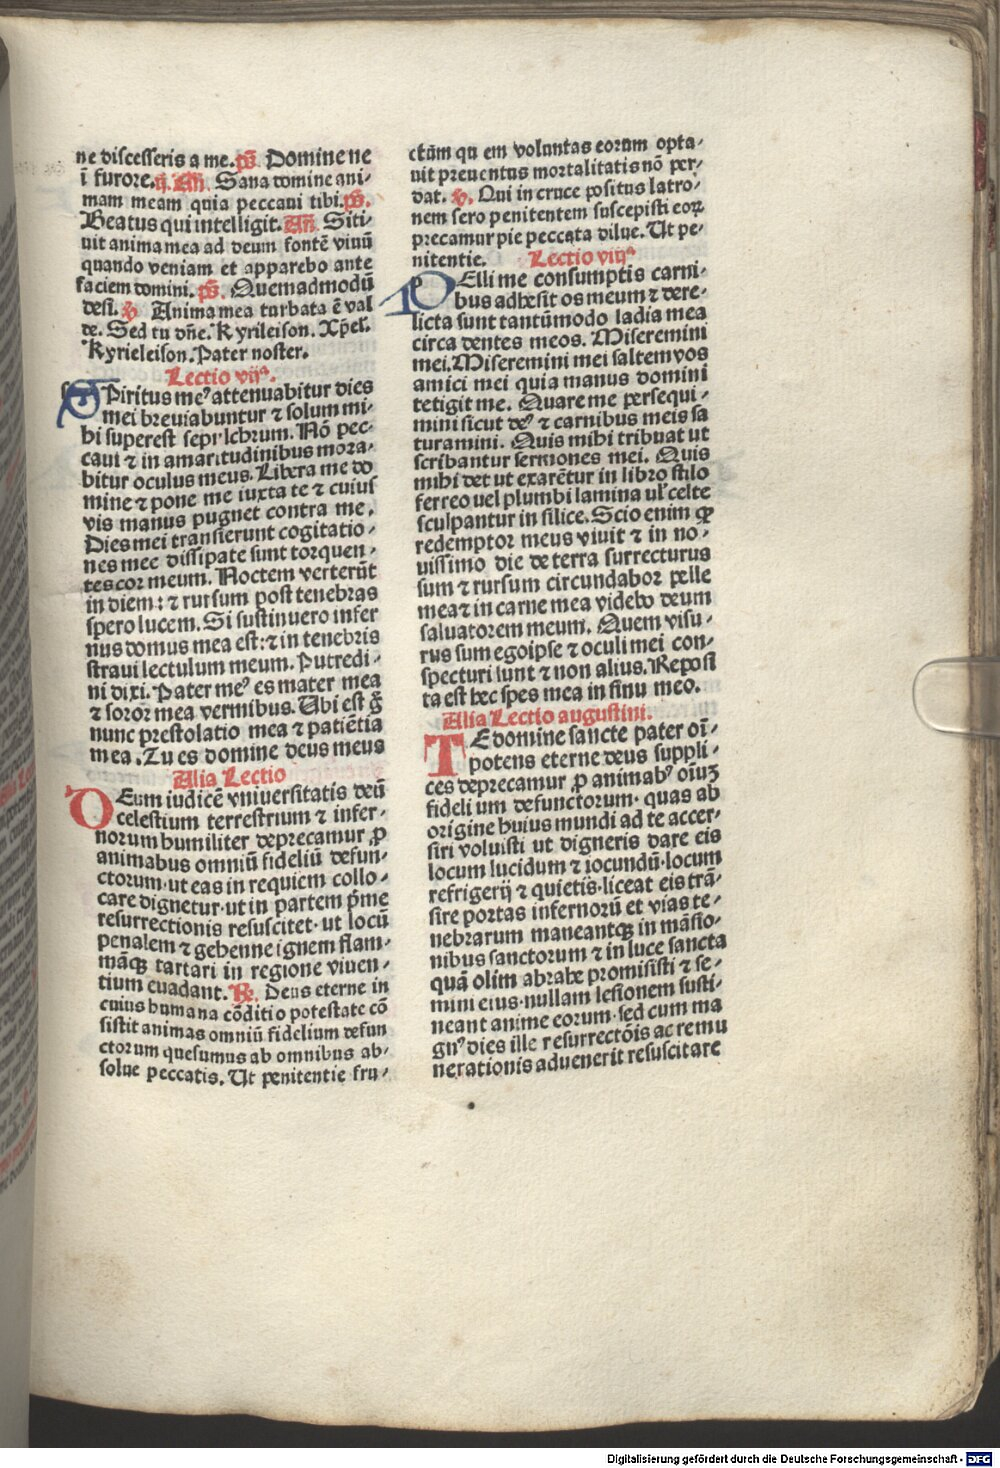 ne discesseris a me. ps. Domine ne
ī furore. ij. Añ. Sana domine ani-
mam meam quia peccaui tibi. ps.
Beatus qui intelligit. Añ. Siti-
uit anima mea ad deum fontē viuū
quando veniam et apparebo ante
faciem domini. ps. Quemadmodū
desi. v. Anima mea turbata ē val
de. Sed tu dñe. Kyrileison. Xp̄el.
Kyrieleison. Pater noster.
Lectio vijᵃ.
SPiritus me⁹ attenuabitur dies
mei breuiabuntur ⁊ solum mi-
hi superest sepulchrum. Nō pec-
caui ⁊ in amaritudinibus mora-
bitur oculus meus. Libera me do
mine ⁊ pone me iuxta te ⁊ cuius
vis manus pugnet contra me.
Dies mei transierunt cogitatio-
nes mee dissipate sunt torquen-
tes cor meum. Noctem verterūt
in diem: ⁊ rursum post tenebras
spero lucem. Si sustinuero infer
nus domus mea est: ⁊ in tenebris
straui lectulum meum. Putredi-
ni dixi. Pater me⁹ es mater mea
⁊ soror mea vermibus. Ubi est g̊
nunc prestolatio mea ⁊ patiētia
mea. Tu es domine deus meus
Alia Lectio
DEum iudicē vniuersitatis deū
celestium terrestrium ⁊ infer-
norum humiliter deprecamur ꝓ
animabus omniū fideliū defun-
ctorum· ut eas in requiem collo-
care dignetur· ut in partem p̄me
resurrectionis resuscitet· ut locū
penalem ⁊ gehenne ignem flam-
māqꝫ tartari in regione viuen-
tium euadant. ℟. Deus eterne in
cuius humana cōditio potestate cō
sistit animas omniū fidelium defun
ctorum quesumus ab omnibus ab-
solue peccatis. Ut penitentie fru-
ctum qu em voluntas eorum opta-
uit preuentus mortalitatis nō per-
dat. v. Qui in cruce positus latro-
nem sero penitentem suscepisti eoꝝ
precamur pie peccata dilue. Ut pe-
nitentie. Lectio viijᵃ
PElli me consumptis carni-
bus adhesit os meum ⁊ dere-
licta sunt tantūmodo labia mea
circa dentes meos. Miseremini
mei. Miseremini mei saltem vos
amici mei quia manus domini
tetigit me. Quare me persequi-
mini sicut de⁹ ⁊ carnibus meis sa
turamini. Quis mihi tribuat ut
scribantur sermones mei. Quis
mihi det ut exarētur in libro stilo
ferreo uel plumbi lamina uł celte
sculpantur in silice. Scio enim ꝙ
redemptor meus viuit ⁊ in no-
uissimo die de terra surrecturus
sum ⁊ rursum circundabor pelle
mea ⁊ in carne mea videbo deum
saluatorem meum. Quem visu-
rus sum ego ipse ⁊ oculi mei con-
specturi sunt ⁊ non alius. Reposi
ta est hec spes mea in sinu meo.
Alia Lectio augustini.
TE domine sancte pater oī-
potens eterne deus suppli-
ces deprecamur ꝓ animab⁹ oīuꝫ
fideli um defunctorum· quas ab
origine huius mundi ad te accer-
siri voluisti ut digneris dare eis
locum lucidum ⁊ iocundū· locum
refrigerij ⁊ quietis· liceat eis trā-
sire portas infernorū et vias te-
nebrarum maneantqꝫ in māsio-
nibus sanctorum ⁊ in luce sancta
quā olim abrahe promisisti ⁊ se-
mini eius· nullam lesionem susti-
neant anime eorum· sed cum ma
gn⁹ dies ille resurrectōis ac remu
nerationis aduenerit resuscitare
Digitalisierung gefördert durch die Deutsche Forschungsgemeinschaft - DFG